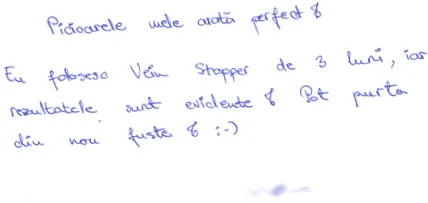 Picioarele mele arată perfect!
Eu folosesc Vein Stopper de 3 luni, iar
rezultatele sunt evidente! Pot purta
din nou fuste! :-)